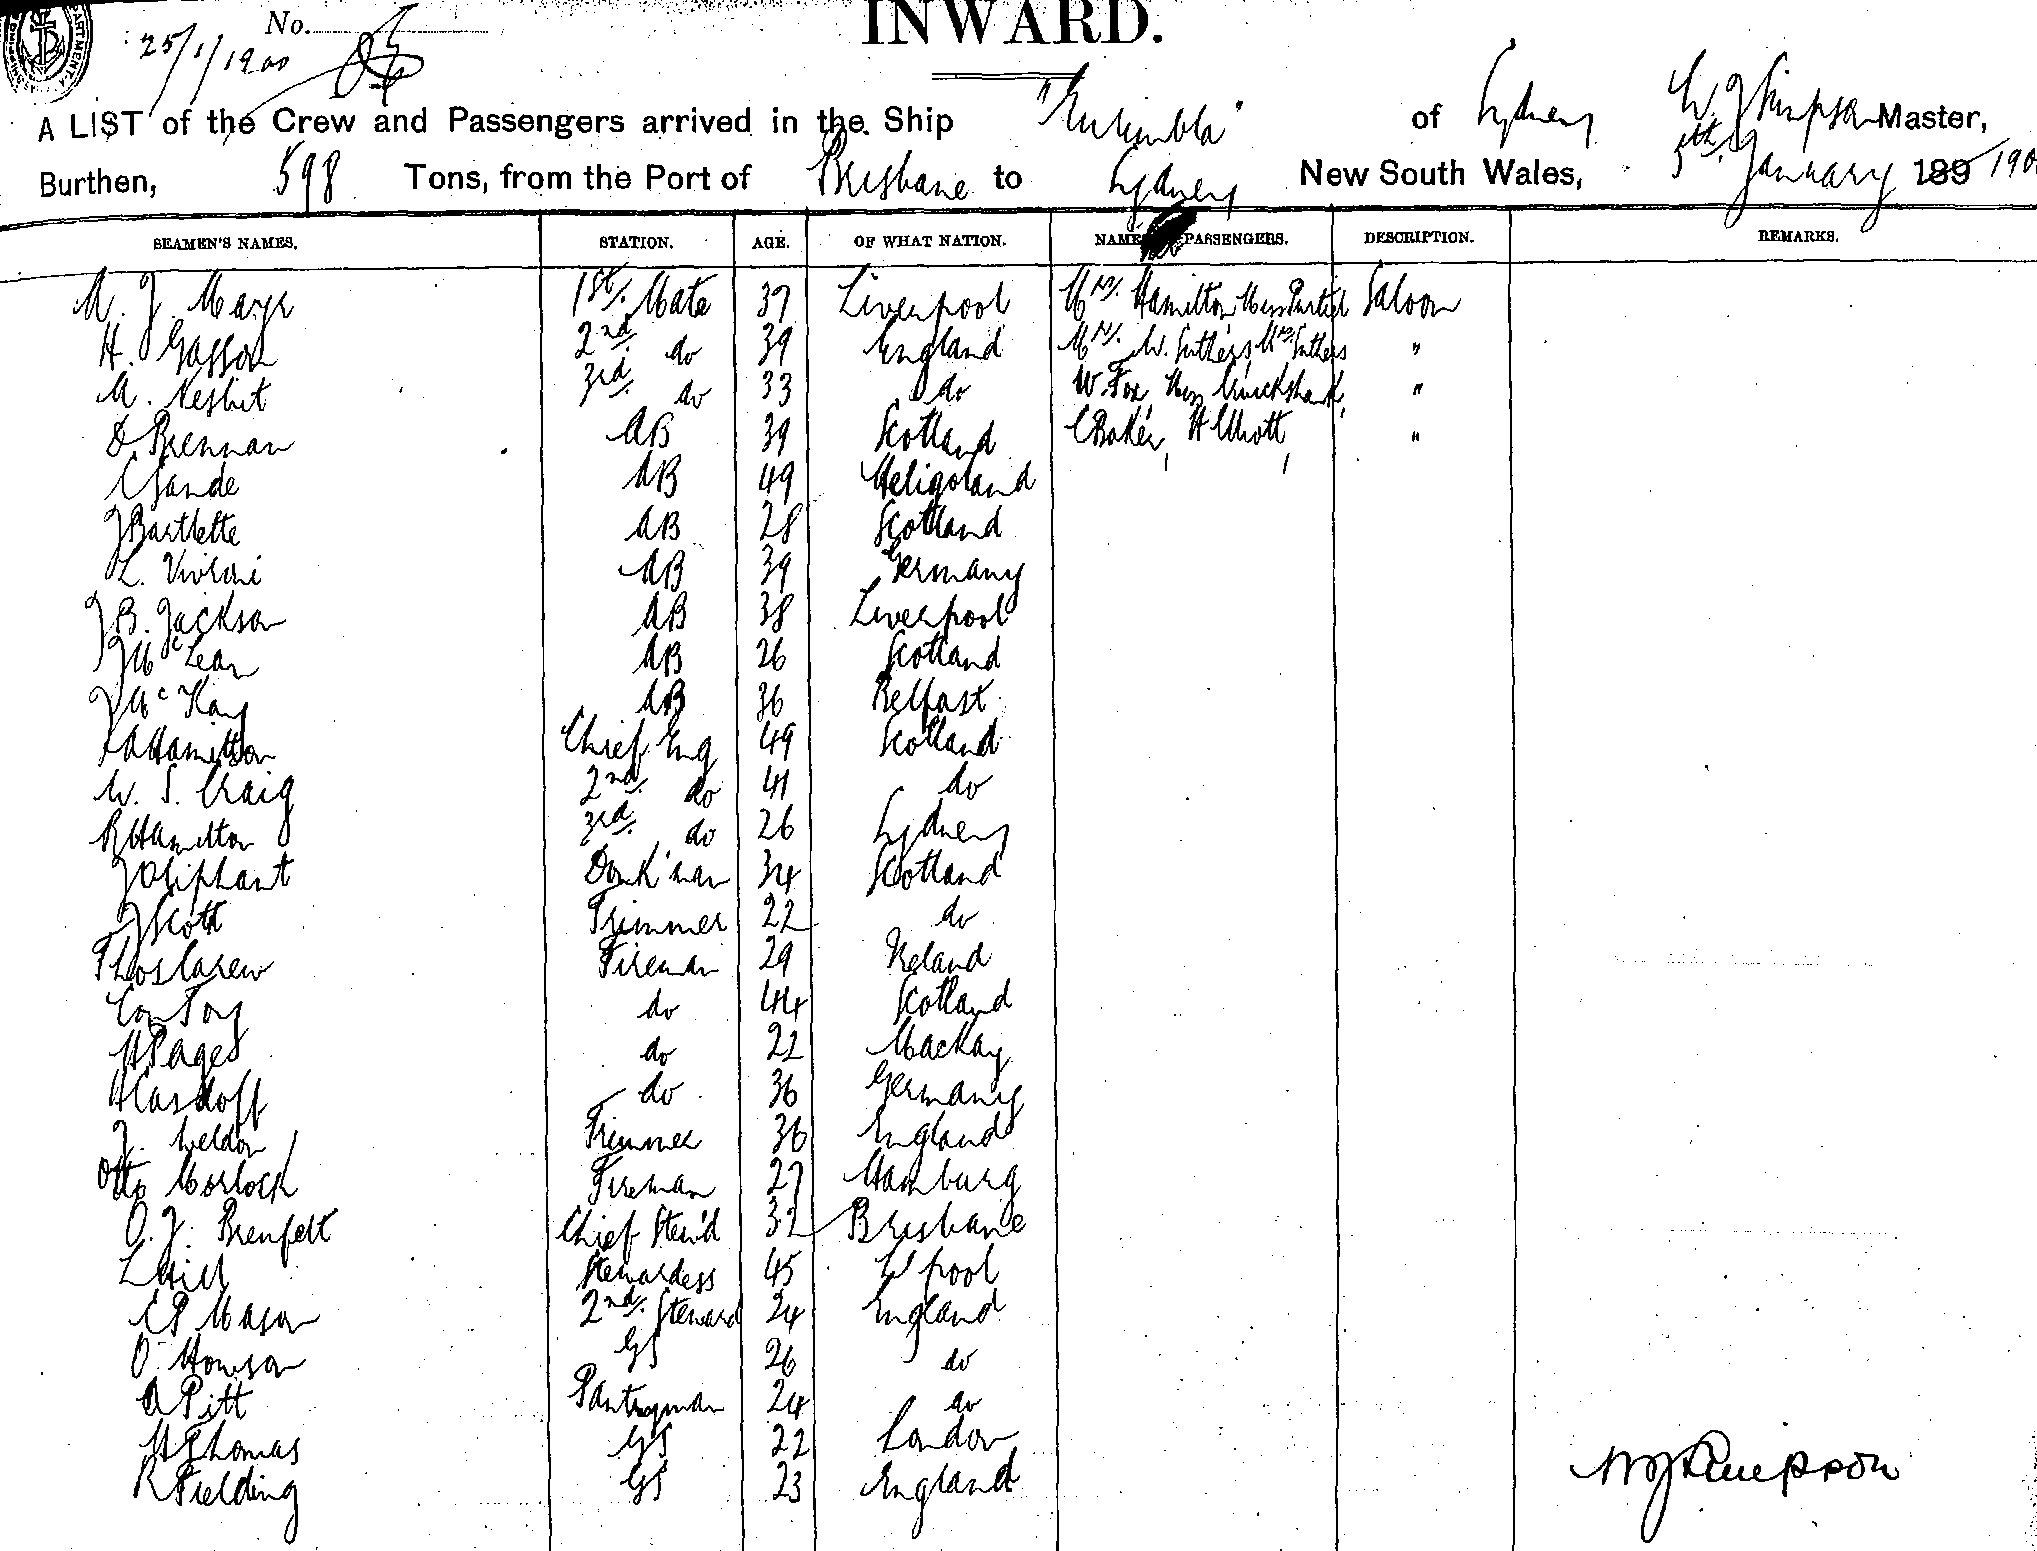 No.
25/1/1900
INWARD.
A LIST of the Crew and Passengers arrived in the Ship "Eurimbla" of Sydney W J Simpson Master,
Burthen, 598 Tons, from the Port of Brisbane to Sydney New South Wales, 5th January 189 1900
SEAMEN'S NAMES. STATION. AGE. OF WHAT NATION. NAMES PASSENGERS. DESCRIPTION. REMARKS.
1st. Mate 37 Liverpool Mrs. Hamilton Miss Saloon
H. Gasson 2nd. do 39 England Mrs. W. Suthers Mrs Suthers "
A. Nesbit 3rd. do 33 do W. Fox Miss Cruickshank, "
D. Brennan AB 39 Scotland C Baker, H Elliott, "
C Sande AB 49 Heligoland
J Bartlette AB 28 Scotland
L. AB 39 Germany
J B. Jackson AB 38 Liverpool
J McLean AB 26 Scotland
J McKay AB 36 Belfast
A Hamilton Chief Eng 49 Scotland
W. S. Craig 2nd. do 41 do
R Hamilton 3rd. do 26 Sydney
J Oliphant Donk'man 34 Scotland
J Scott Trimmer 22 do
Thos Carew Fireman 29 Ireland
Con Foy do 44 Scotland
H Page do 22 Mackay
H do 36 Germany
J. Weldon Trimmer 36 England
Otto Morlock Fireman 27 Hamburg
O. J. Brenfelt Chief Stew'd 32 Brisbane
L Hill Stewardess 45 L'pool
C P Mason 2nd. Steward 24 England
O. Howson GS 26 do
A Pitt Pantryman 24 do
H Thomas GS 22 London
R Fielding GS 23 England
W J Simpson